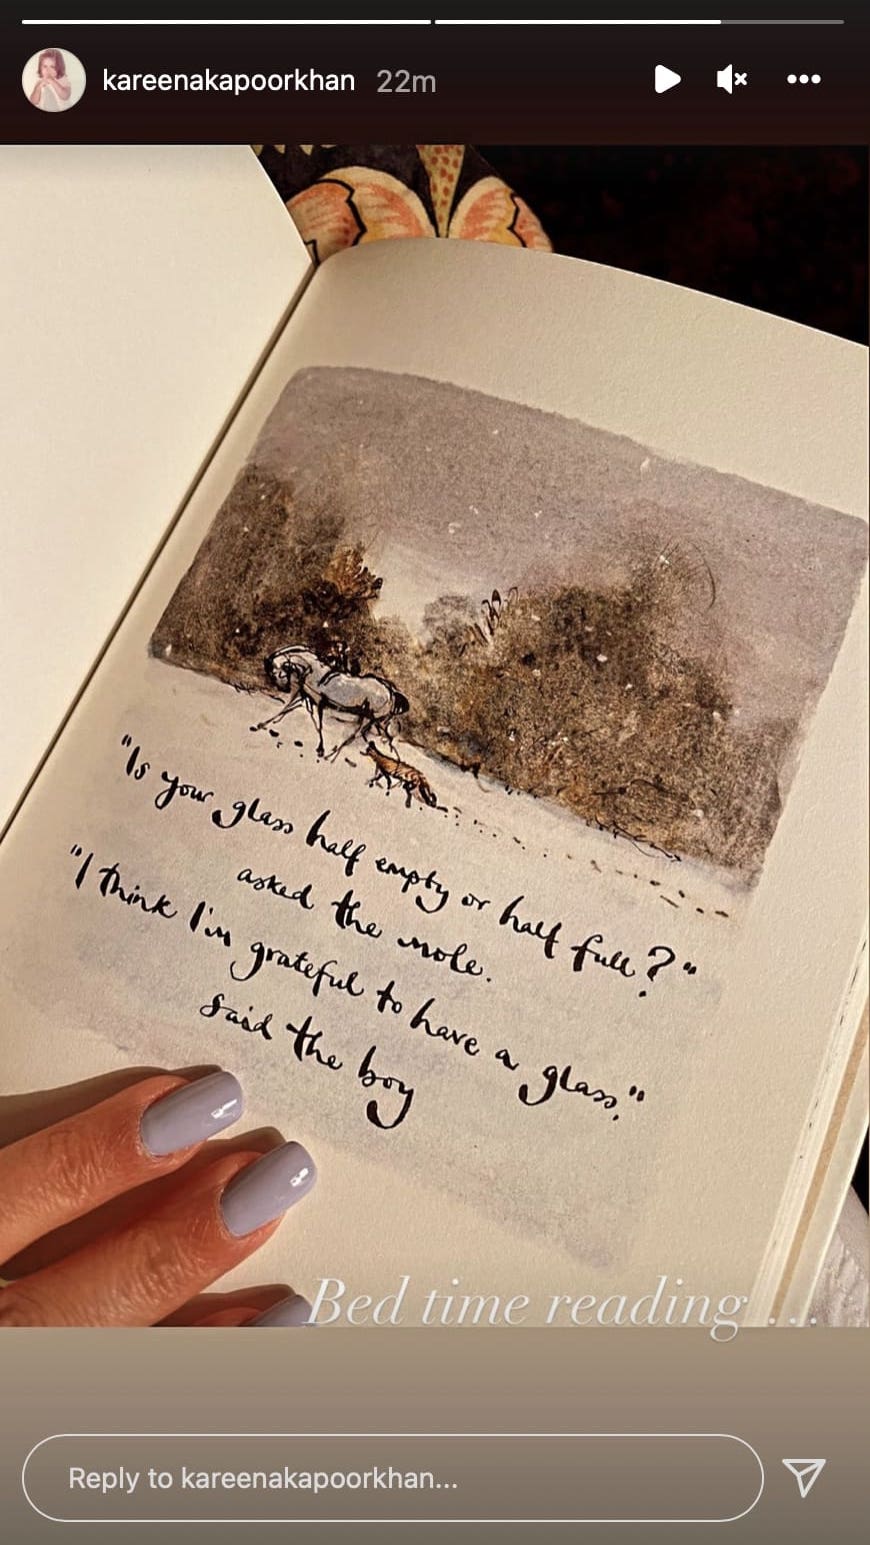 kareenakapoorkhan 22m
"Is your glass half empty or half full?"
asked the mole.
"I think I'm grateful to have a glass,"
said the boy
Bed time reading ...
Reply to kareenakapoorkhan...